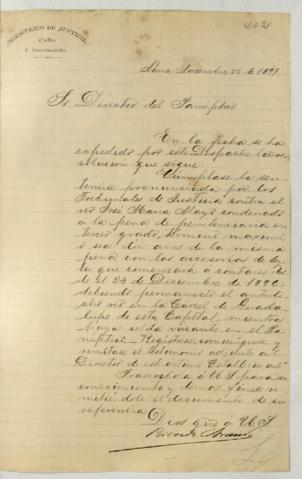 MINISTERIO DE JUSTICIA,
Culto
é Instrucción.
Lima Noviembre 22 de 1897.
Sr Director del Panóptico
En la fecha se ha
expedido por este Despacho la re-
solución que sigue.
Cúmplase la sen-
tencia pronunciada por los
Tribunales de Justicia contra el
reo José María condenado
á la pena de penitenciaria en
tercer grado, término maximo,
ó sea diez años de la misma
pena con las accesorias de ley
la que comenzará á contarse des-
de el 24 de Diciembre de 1896,
debiendo permanecer el antedi-
cho reo en la Carcel de Guada-
lupe de esta Capital mientras
haya celda vacante en el Pa-
nóptico. Regístrese, comuníquese y
remítase el testimonio adjunto al
Director de este último Establecimto"
Trascríbola á US para su
conocimiento y demas fines re-
mitiéndole el documento de su
referencia
Dios gue á US
Ricardo